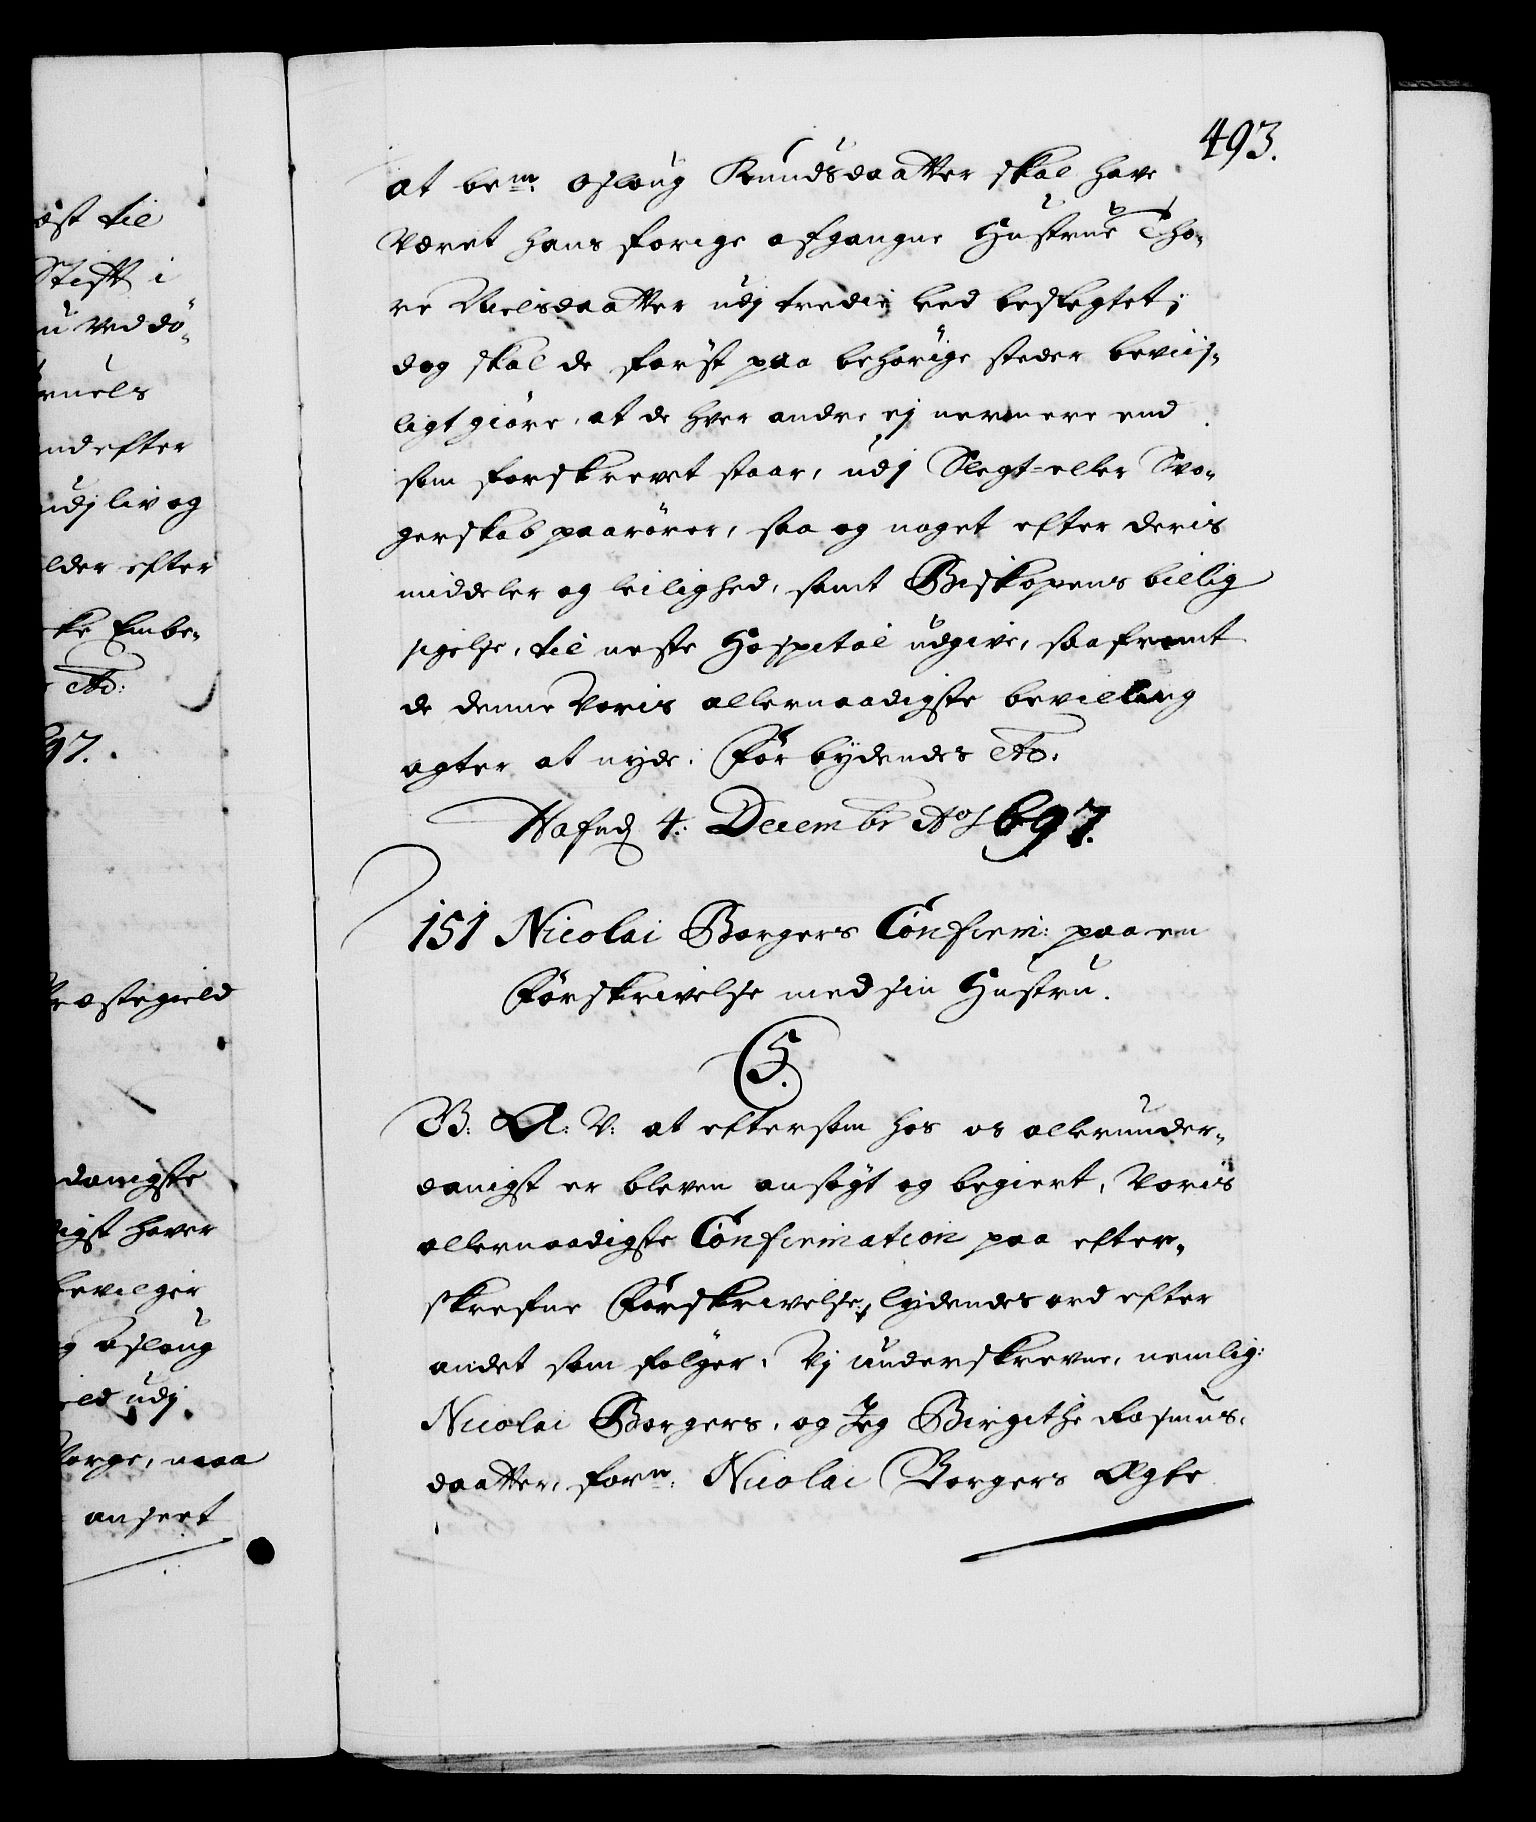 493.
at bem: Asloug Knudsdaatter skal have
været hans forige afgangne Hustrue Tho-
re Nielsdaatter udj tredie led beslegtet;
dog skal de først paa behørige steder beviis-
ligt giøre, at de hver andre ej nermere end
som forskrevet staar, udj Slegt- eller Svo-
gerskab paarører, saa og noget efter deris
middeler og leilighed, samt Biskopens billig
sigelse, til neste Hospital udgive, saafremt
de denne Voris allernaadigste bevilling
agter at nyde. Forbydendes etc:
Hafnj 4: Decembr Ao 1697.
151 Nicolai Borgers Confirm: paa en
Forskrivelse med sin Hustru.
C5.
B: A: V: at eftersom hos os allerunder-
danigst er bleven ansøgt og begiert, Voris
allernaadigste Confirmation paa efter-
skrefne Forskrivelse, lydendes ord efter
andet som følger. Vj underskrevne, nemlig:
Nicolai Borgers, og Jeg Birgithe Rasmus-
daatter, forn: Nicolai Borgers Ægte
est til
Stift i
u ved dö-
ruels
end efter
udj liv og
lder efter
ke Embe-
etc:
97.
Præstegield
danigste
igst haver
bevilger
og Asloug
eld udj
Norge, maa
anseet